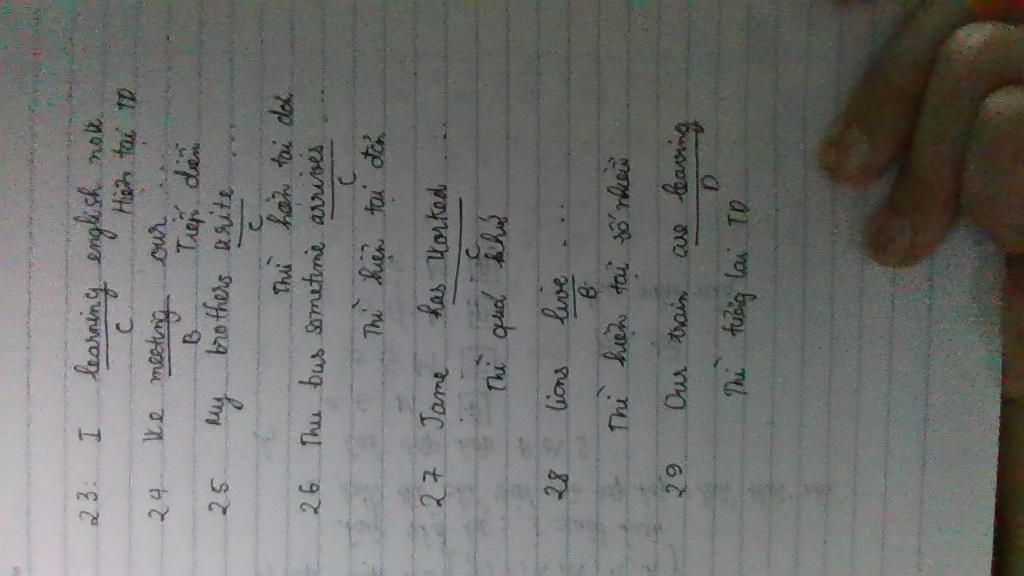 23: I learning english now
C Hiện tại TD
24 We meeting our ...
B Tiếp diễn
25 My brothers write ...
C
Thì hiện tại đơn
26 The bus sometime arrises ...
C
Thì hiện tại đơn
27 Jame has worked ...
C
Thì quá khứ
28 lions live ...
B
Thì hiện tại số nhiều
29 Our train are leaving
D
Thì tương lai TD